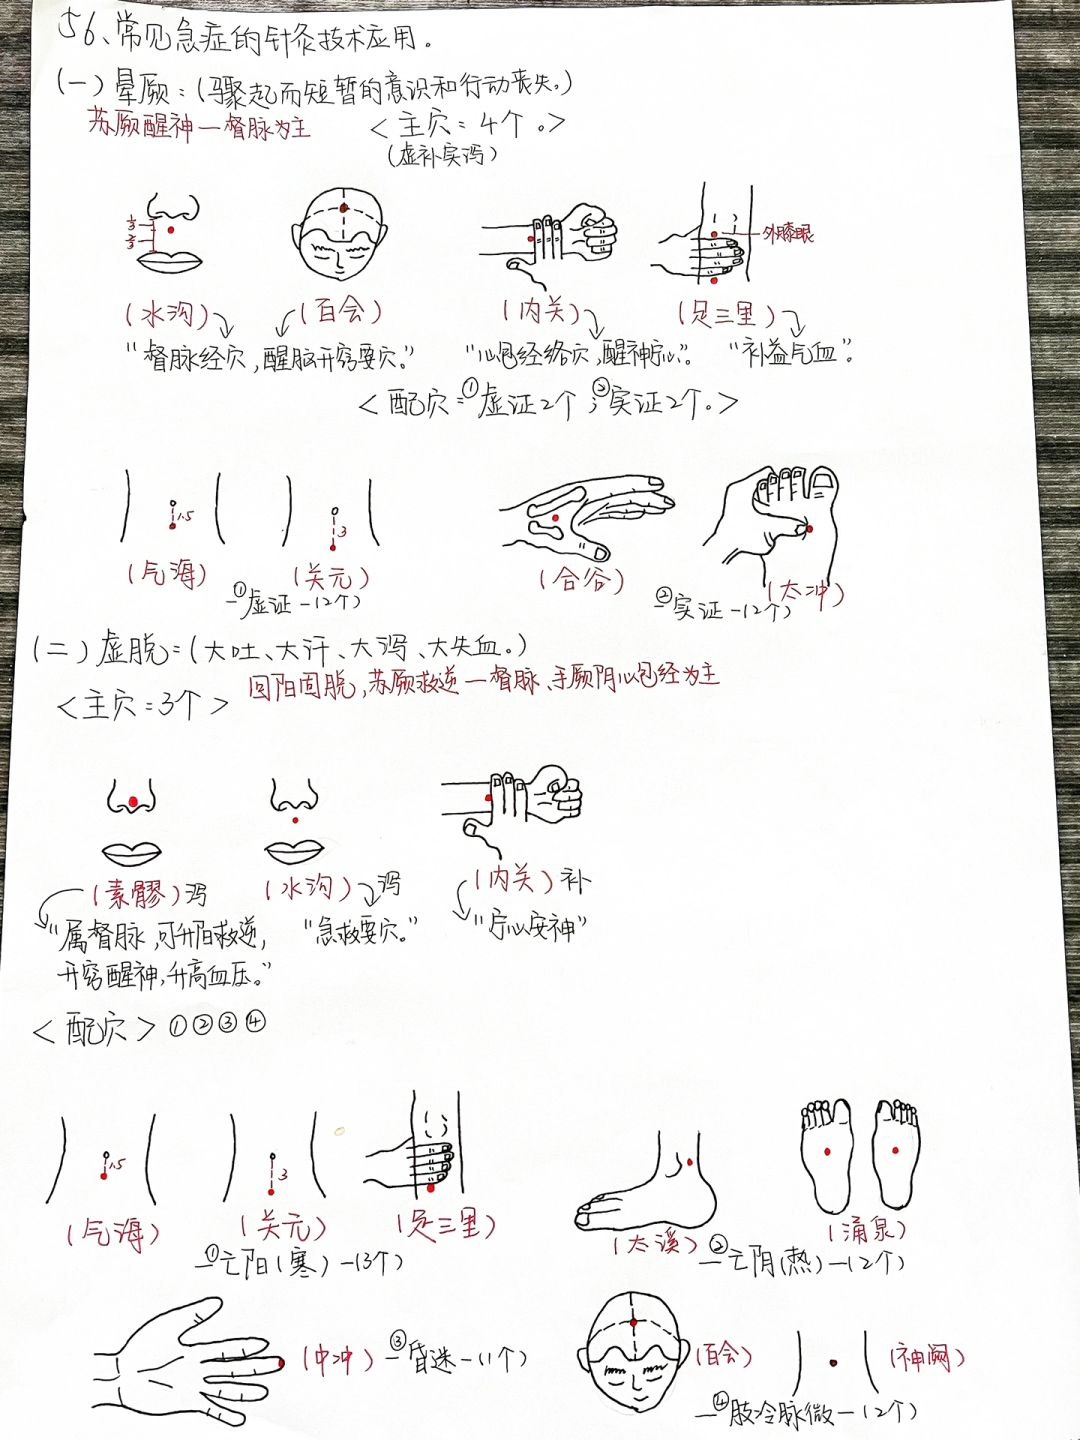 56、常见急症的针灸技术应用。
(一)晕厥:(骤起而短暂的意识和行动丧失。)
苏厥醒神一督脉为主 <主穴:4个。>
(虚补实泻)
1/3
2/3
外膝眼
(水沟) (百会) (内关) (足三里)
"督脉经穴,醒脑开窍要穴。" "心包经络穴,醒神宁心"。 "补益气血"。
<配穴:①虚证2个;②实证2个。>
1.5 3
(气海) (关元) (合谷) (太冲)
①虚证-(2个) ②实证-(2个)
(二)虚脱:(大吐、大汗、大泻、大失血。)
回阳固脱,苏厥救逆一督脉、手厥阴心包经为主
<主穴:3个>
(素髎)泻 (水沟)泻 (内关)补
"属督脉,可升阳救逆, "急救要穴。" "宁心安神"
开窍醒神,升高血压。"
<配穴>①②③④
1.5 3
(气海) (关元) (足三里) (太溪) (涌泉)
①亡阳(寒)-(3个) ②亡阴(热)-(2个)
(中冲) ③昏迷-(1个) (百会) (神阙)
④肢冷脉微-(2个)